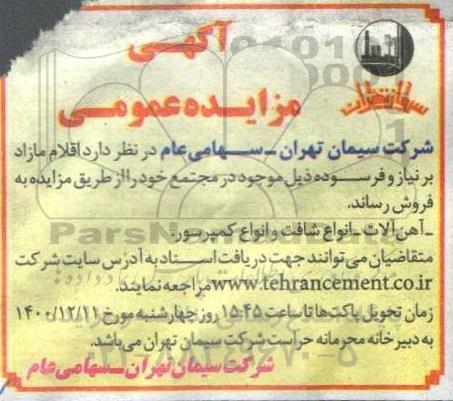 آگهی
مزایده عمومی
سیمان تهران
شرکت سیمان تهران ـ سهامی عام در نظر دارد اقلام مازاد
بر نیاز و فرسوده ذیل موجود در مجتمع خود را از طریق مزایده به
فروش رساند.
ـ آهن آلات ـ انواع شافت و انواع کمپرسور.
متقاضیان می توانند جهت دریافت اسناد به آدرس سایت شرکت
www.tehrancement.co.ir مراجعه نمایند.
زمان تحویل پاکت ها تا ساعت ۱۵:۴۵ روز چهارشنبه مورخ ۱۴۰۰/۱۲/۱۱
به دبیرخانه محرمانه حراست شرکت سیمان تهران می باشد.
شرکت سیمان تهران ـ سهامی عام